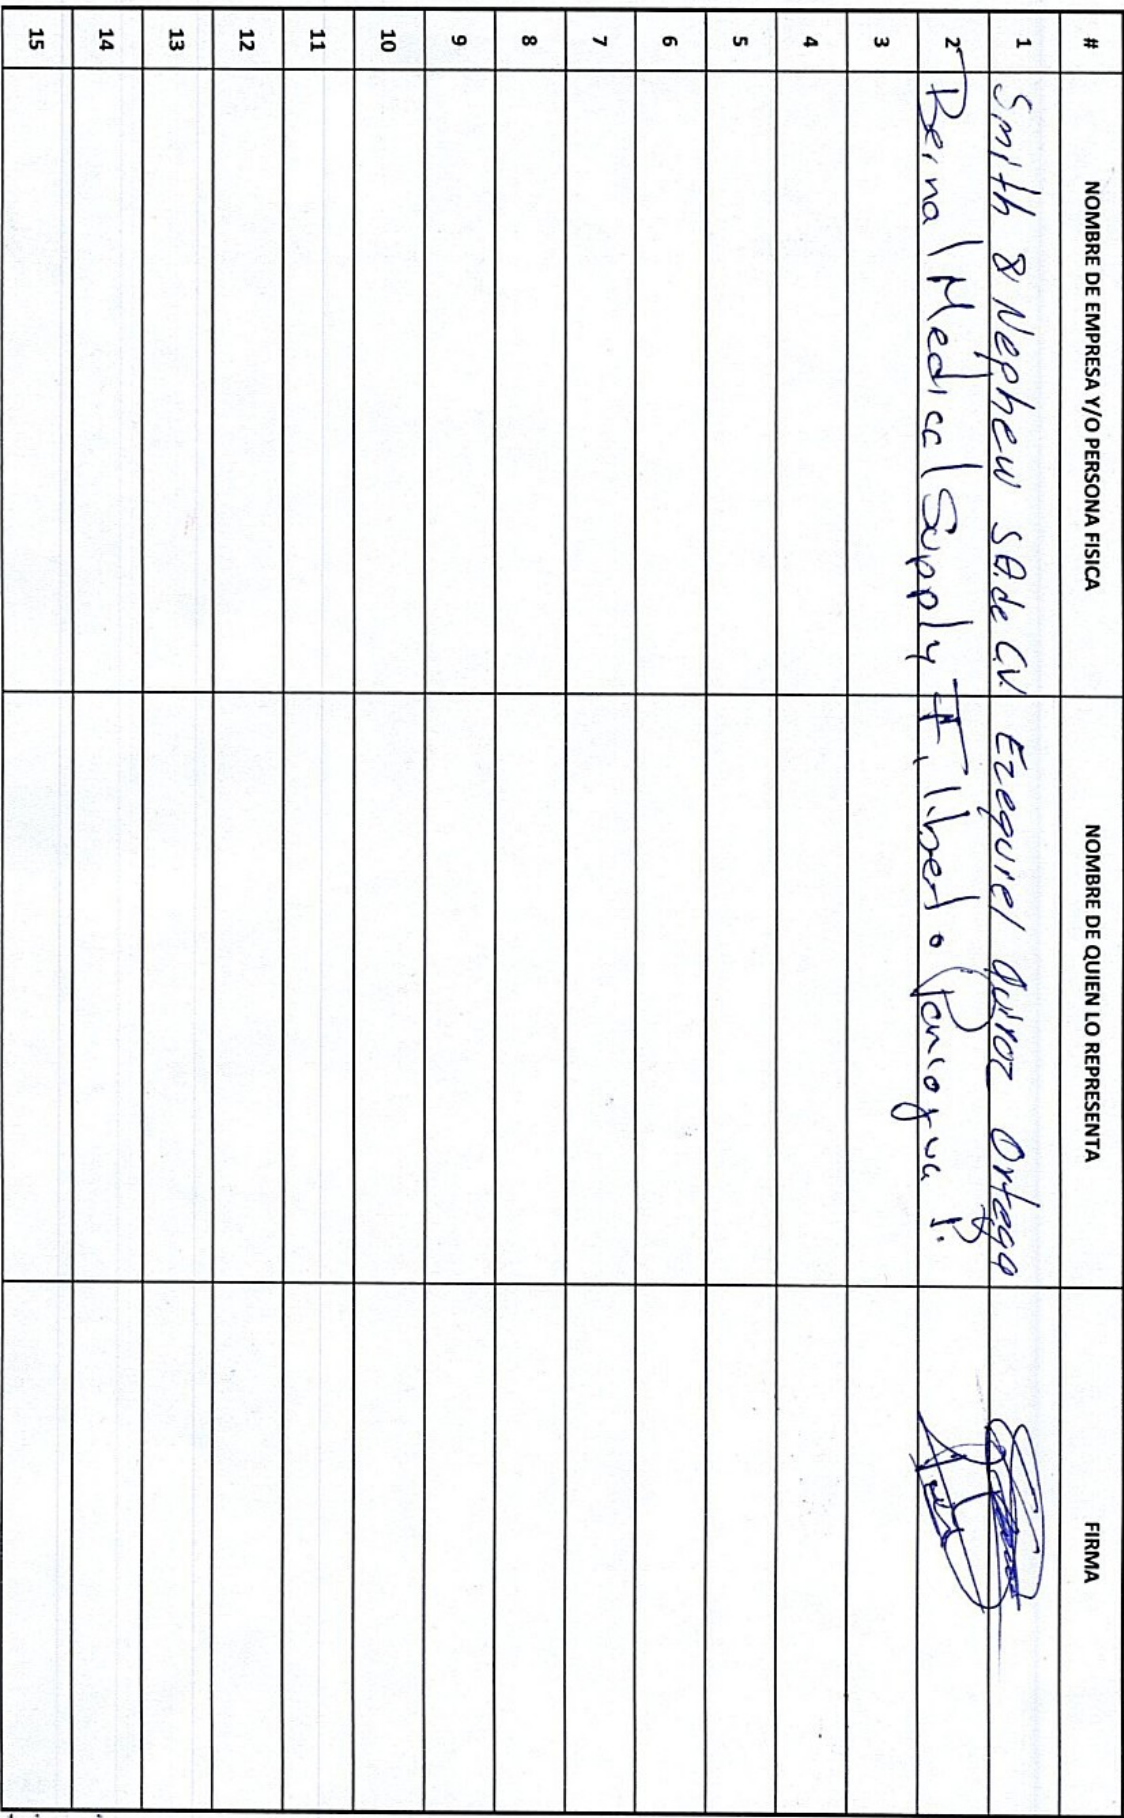 # NOMBRE DE EMPRESA Y/O PERSONA FISICA NOMBRE DE QUIEN LO REPRESENTA FIRMA
1 Smith & Nephew SA.de C.V. Ezequiel Quiroz Ortega
2 Bernal Medical Supply Filiberto Paniagua P.
3
4
5
6
7
8
9
10
11
12
13
14
15